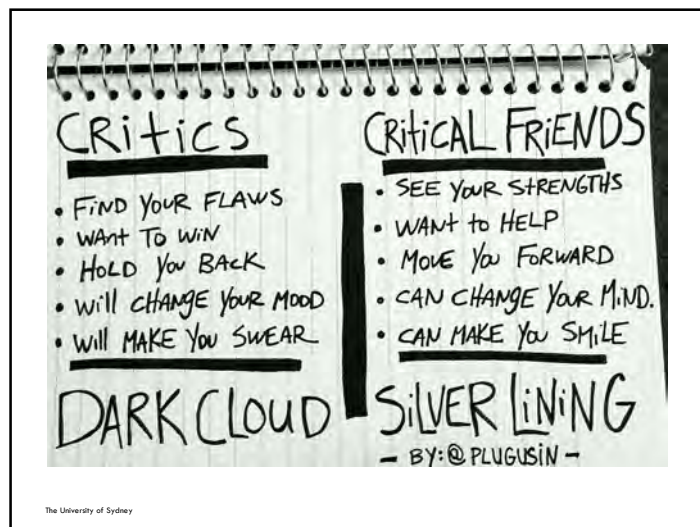 CRitiCS
• FiND YOUR FLAWS
• WANt TO WiN
• HOLD YOU BACK
• Will CHANGE YOUR MOOD
• Will MAKE YOU SWEAR
DARK CLOUD
CRitiCAL FRiENDS
• SEE YOUR StRENGtHS
• WANt to HELP
• MOVE YOU FORWARD
• CAN CHANGE YOUR MiND.
• CAN MAKE YOU SMiLE
SiLVER LiNiNG
— BY: @PLUGUSiN —
The University of Sydney